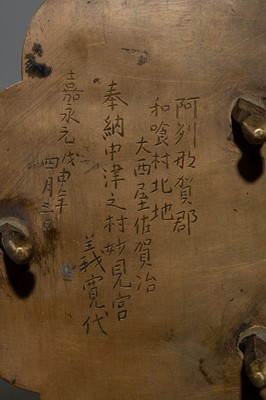 阿州那賀郡
和喰村北地
大西屋佐賀治
奉納中津之村妙見宮
義寛代
嘉永元戊申年
四月三日